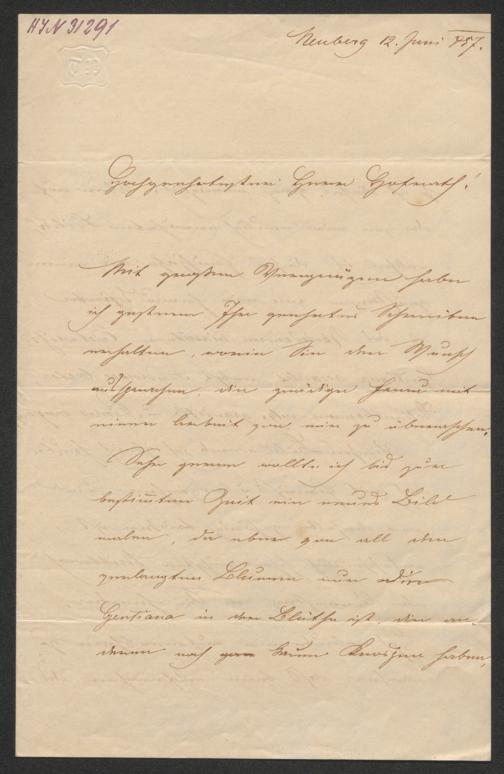 HIN 31291
Neuberg 12. Juni 857.
Hochgeehrtester Herr Hofrath!
Mit großem Vergnügen habe
ich gestern Ihr geehrtes Schreiben
erhalten, worin Sie den Wunsch
aussprechen, die gnädige Frau mit
einer Arbeit von mir zu überraschen.
Sehr gerne wollte ich bis zur
bestimmten Zeit ein neues Bild
malen, da aber von all den
verlangten Blumen nur die
Gentiana in der Blüthe ist, die an-
deren noch kaum Knospen haben,